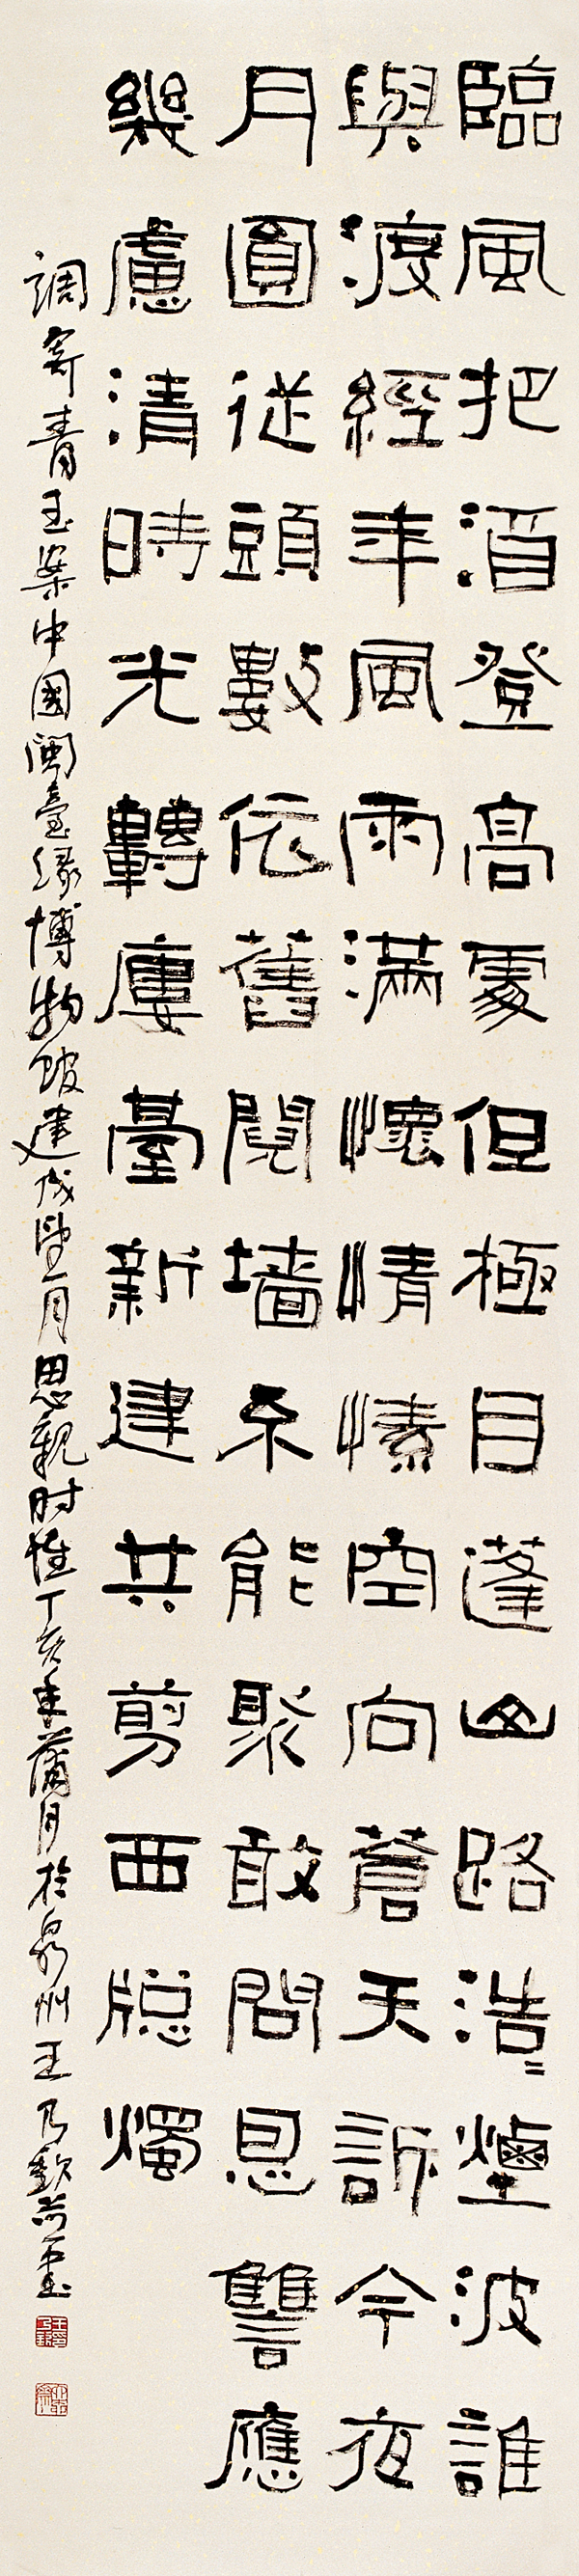 臨風把酒登高處但極目蓬山路浩〻煙波誰
與渡經年風雨滿懷情愫空向蒼天訴今夜
月圓從頭數依舊鬩墙不能聚敢問恩讐應
幾慮清時光轉廔臺新建共剪西牕燭
調寄青玉案中國閩臺緣博物館建成望月思親时惟丁亥年蒲月於泉州王乃欽并書